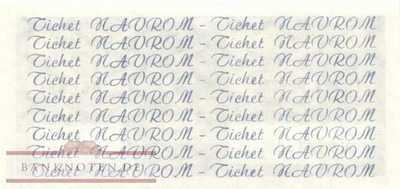 Tichet NAVROM - Tichet NAVROM
Tichet NAVROM - Tichet NAVROM
Tichet NAVROM - Tichet NAVROM
Tichet NAVROM - Tichet NAVROM
Tichet NAVROM - Tichet NAVROM
Tichet NAVROM - Tichet NAVROM
Tichet NAVROM - Tichet NAVROM
Tichet NAVROM - Tichet NAVROM
BANKNOTEN.DE
Tichet NAVROM - Tichet NAVROM